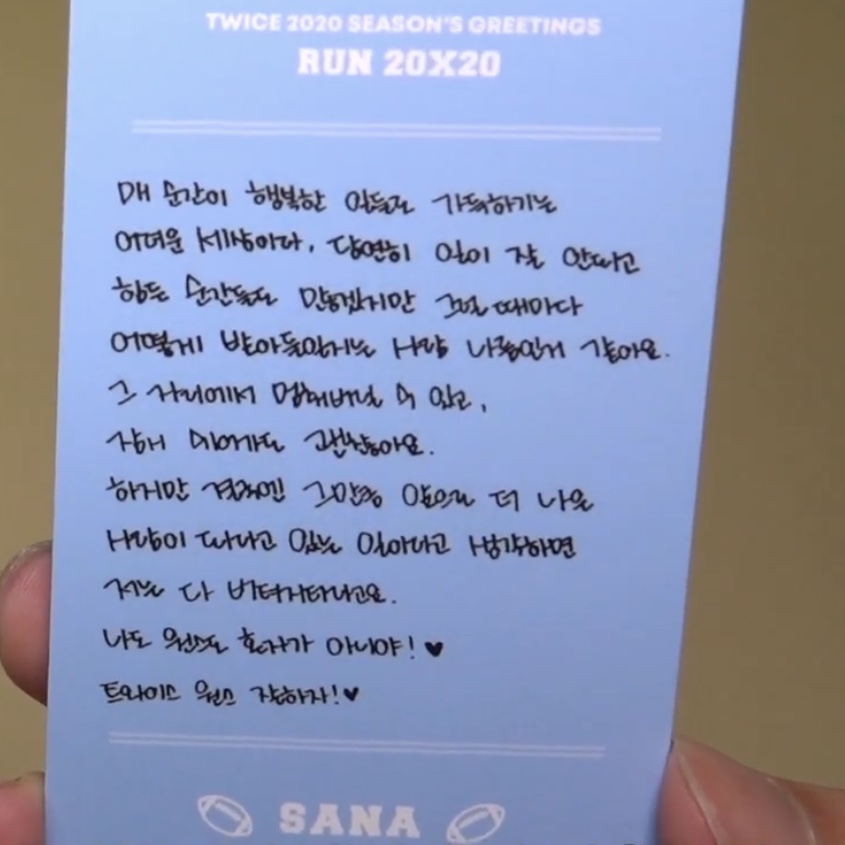 TWICE 2020 SEASON'S GREETINGS
RUN 20X20
매 순간이 행복한 일들로 가득하기는
어려운 세상이다, 당연히 일이 잘 안되고
힘든 순간들도 많겠지만 그럴 때마다
어떻게 받아들일지는 사람 나름인거 같아요.
그 자리에서 멈춰버릴 수 있고,
잠시 쉬어가도 괜찮아요.
하지만 결국엔 그만큼 앞으로 더 나은
사람이 되려고 있는 일이라고 생각하면
저는 다 버텨지더라고요.
나도 원스도 혼자가 아니야!♥
트와이스 원스 잘하자!♥
SANA